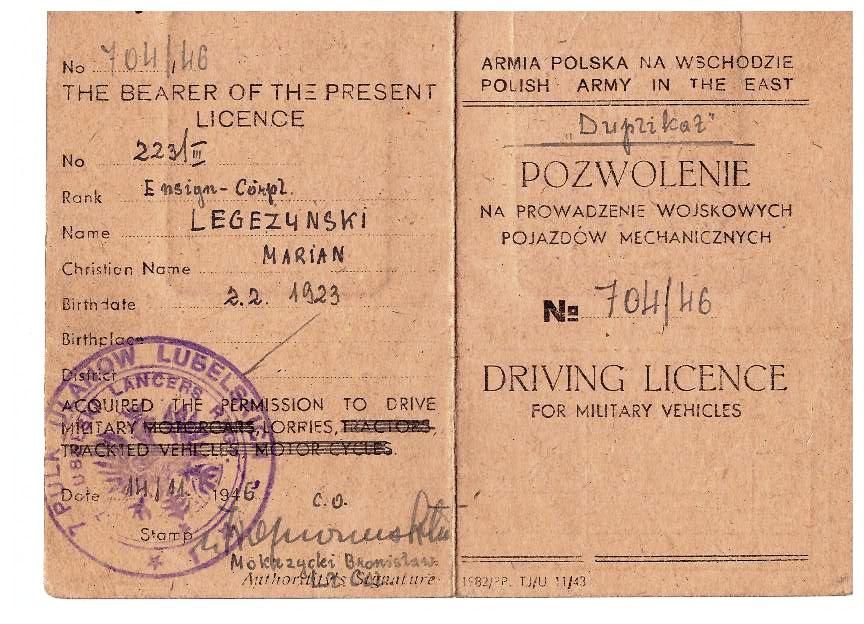 No 704/46
THE BEARER OF THE PRESENT
LICENCE
No 223/III
Rank Ensign-Corpl.
Name LEGEZYNSKI
Christian Name MARIAN
Birthdate 2.2. 1923
Birthplace
District
ACQUIRED THE PERMISSION TO DRIVE
MILITARY MOTORCARS, LORRIES, TRACTORS,
TRACKTED VEHICLES MOTOR-CYCLES.
Date 14/11 1946
C.O.
Stamp
Mokrzycki Bronisław
Authorities Signature
7 PUŁK UŁANÓW
LANCERS
ARMIA POLSKA NA WSCHODZIE
POLISH ARMY IN THE EAST
"Duplikat"
POZWOLENIE
NA PROWADZENIE WOJSKOWYCH
POJAZDÓW MECHANICZNYCH
No 704/46
DRIVING LICENCE
FOR MILITARY VEHICLES
1982/PP. TJ/U 11/43